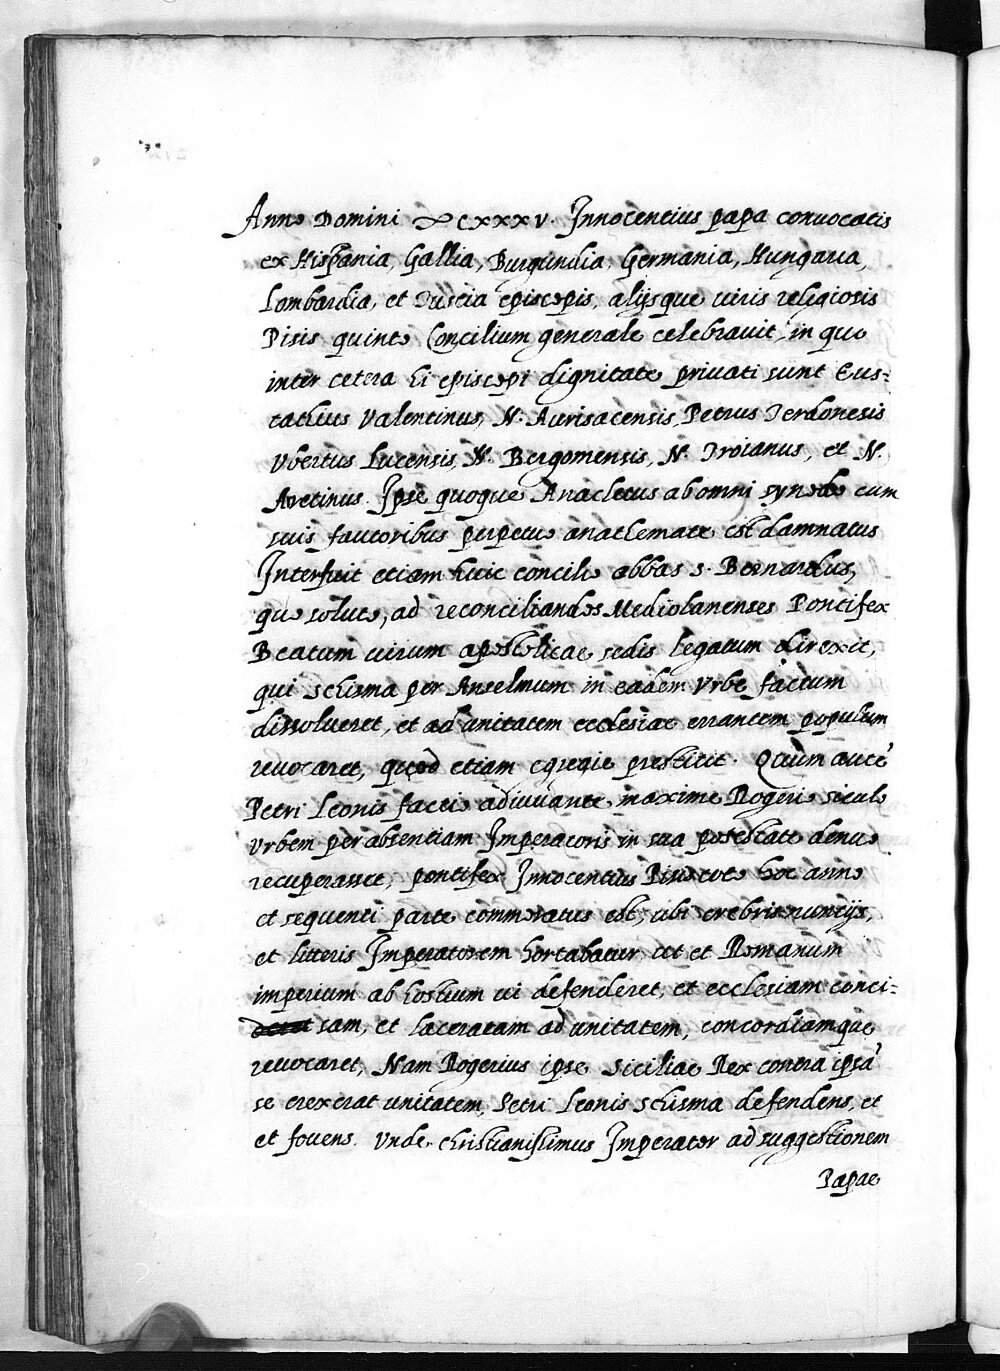 Anno Domini ∞CXXXV. Innocentius papa conuocatis
ex Hispania, Gallia, Burgundia, Germania, Hungaria,
Lombardia, et Tuscia episcopis, alijsque uiris religiosis
Pisis quinto Concilium generale celebrauit, in quo
inter cetera hi episcopi dignitate priuati sunt Eus=
tathius Valentinus, N. Aurisacensis, Petrus Terdonesis
Vbertus Lucensis, N. Bergomensis, N. Troianus, et N.
Aretinus. Ipse quoque Anacletus ab omni synodo cum
suis fautoribus perpetuo anathemate est damnatus
Interfuit etiam huic concilio abbas s. Bernardus,
quo soluto, ad reconciliandos Mediolanenses Pontifex
Beatum uirum apostolicae sedis legatum direxit,
qui schisma per Anselmum in eadem Vrbe factum
dissolueret, et ad unitatem ecclesiae errantem populum
reuocaret, quod etiam egregie prestitit. Quum autē
Petri Leonis factio adiuuante maxime Rogerio siculo
Vrbem per absentiam Imperatoris in sua potestate denuo
recuperasset, pontifex Innocentius Pisis toto hoc anno
et sequenti parte commoratus est, ubi crebris nuntijs,
et litteris Imperatorem hortabatur, ut et Romanum
imperium ab hostium ui defenderet, et ecclesiam conci=
sam, et laceratam ad unitatem, concordiamque
reuocaret, Nam Rogerius ipse Siciliae Rex contra ipsā
se erexerat unitatem, Petri Leonis schisma defendens, et
et fouens. Vnde christianissimus Imperator ad suggestionem
Papae